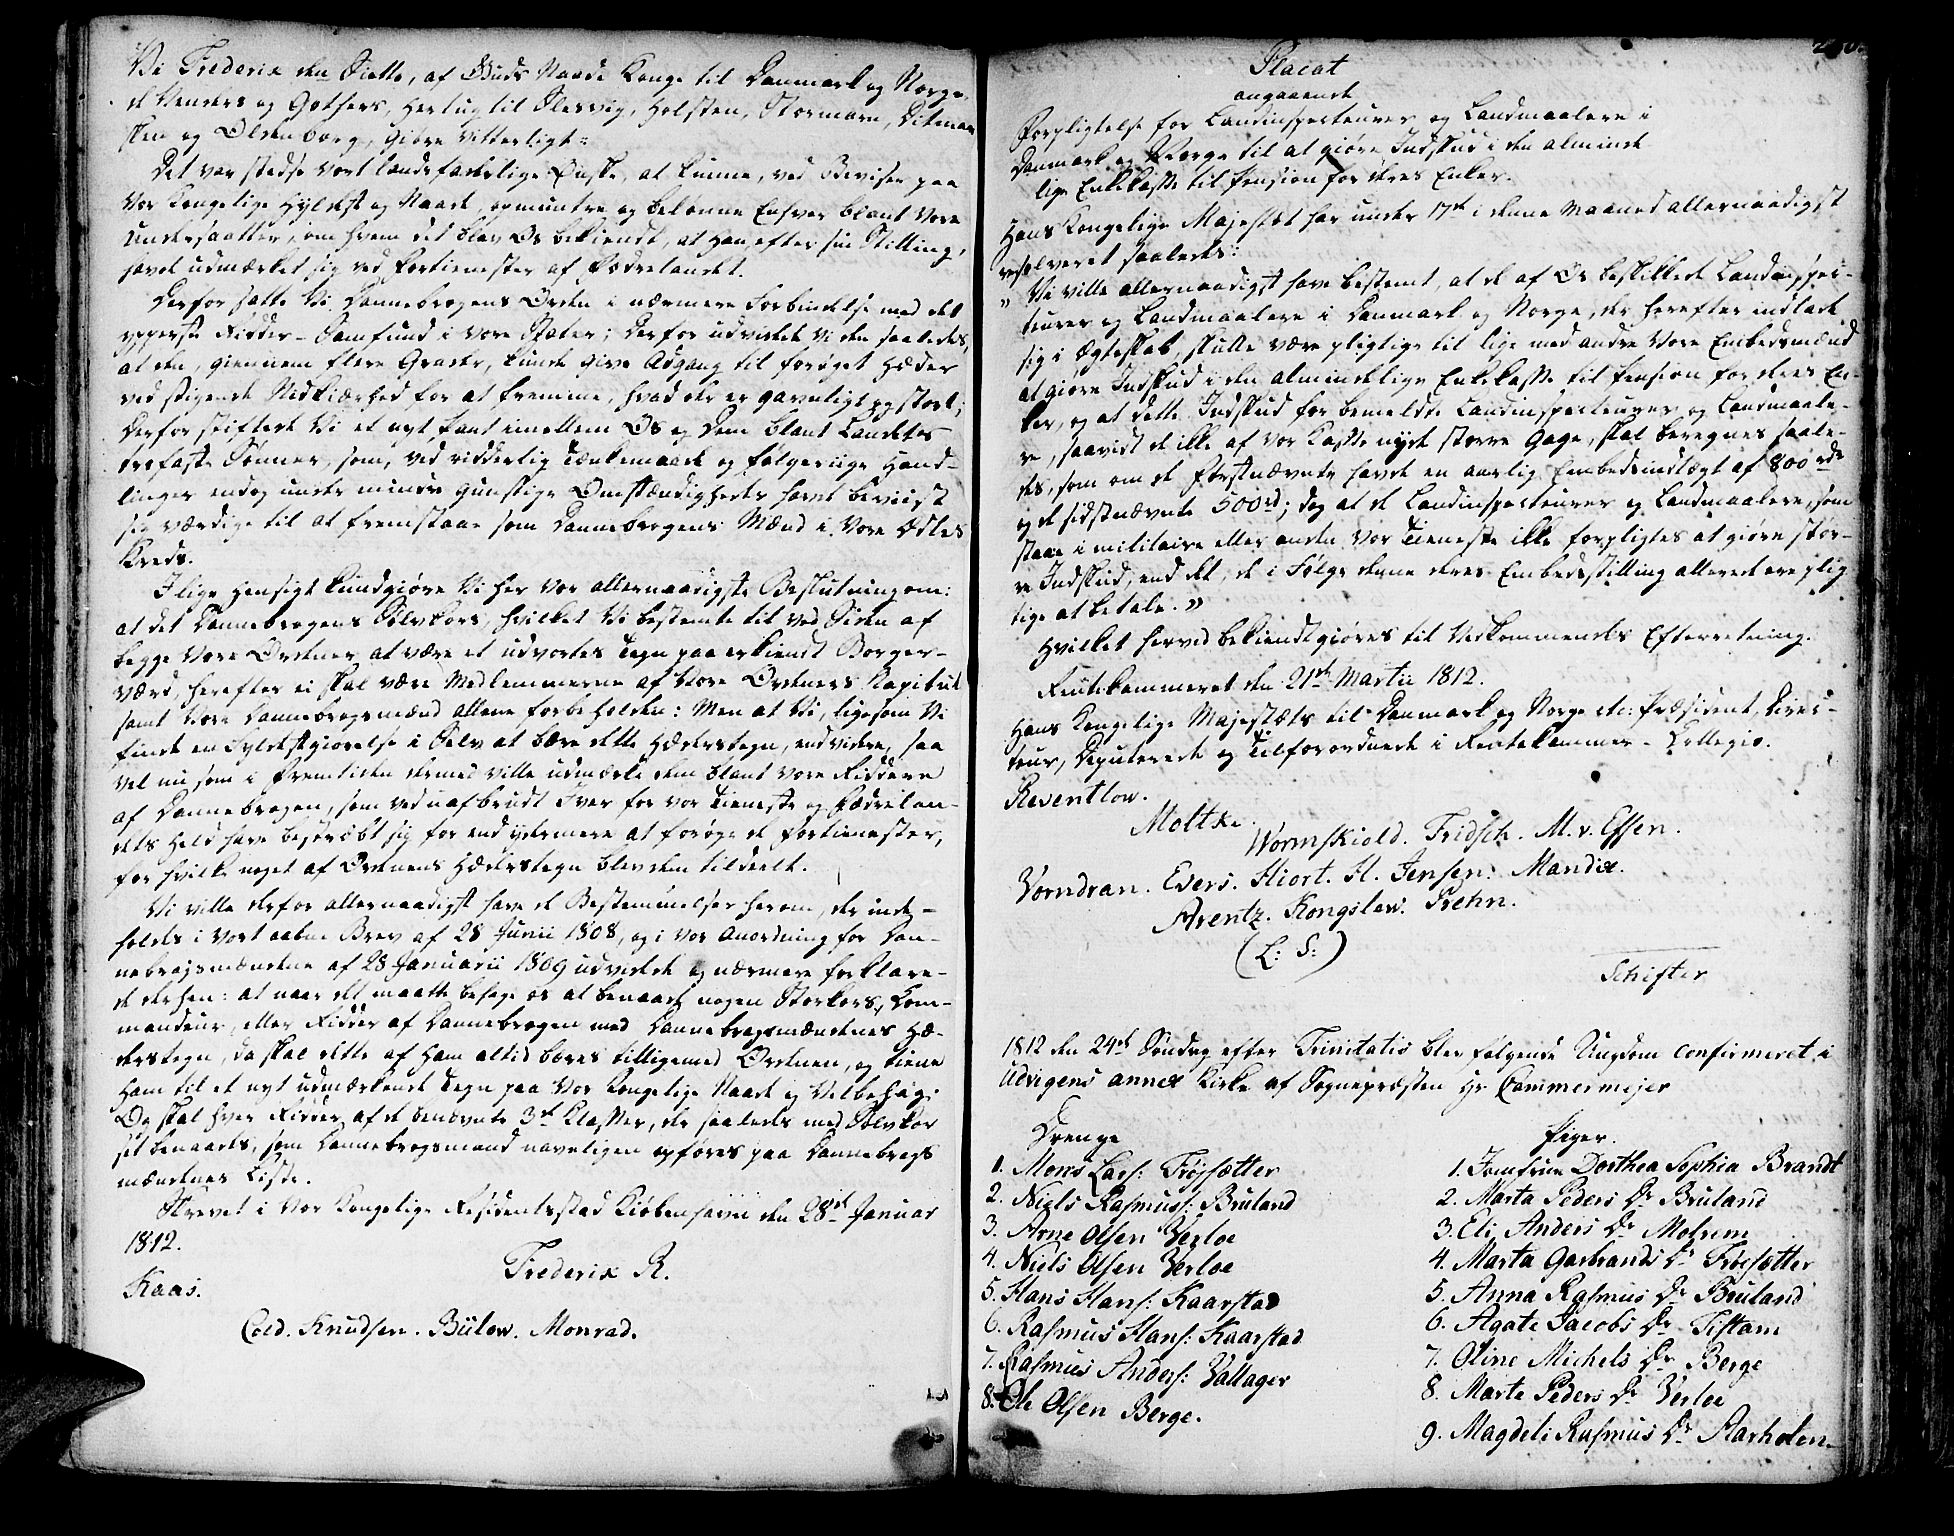 Vi Frederix den Siette, af Guds Naade Konge til Danmark og Norge,
de Venders og Gothers, Hertug til Slesvig, Holsten, Stormarn, Ditmar
sken og Oldenborg, Giøre Vitterligt:
Det var stedse Vort landsfaderlige Ønske, at kunne, ved Beviser paa
Vor Kongelige Hyldest og Naade, opmuntre og belønne Enhver blant Vore
Undersaatter, om hvem det blev Os bekiendt, at han, efter sin Stilling,
havde udmærket sig ved Fortienester af Fædrelandet.
Derfor satte Vi Dannebrogens Orden i nærmere Forbindelse med det
ypperste Ridder-Samfund i Vore Stæter; Derfor udvidede Vi den saaledes,
at den, giennem flere Grader, kunde give Adgang til forøget Hæder
ved stigende Nidkiærhed for at fremme, hvad der er gavnligt og stort;
Derfor stiftede Vi et nyt Baand imellem Os og Dem blant Landets
trofaste Sønner, som, ved ridderlig Tænkemaade og følgeriige Hand-
linger endog under mindre gunstige Omstændigheder havde beviist
sig værdige til at fremstaae som Dannebrogens Mænd i Vore Ædles
Kreds.
I lige Hensigt kundgiøre Vi her Vor allernaadigste Beslutning om:
at det Dannebrogens Sølvkors, hvilket Vi bestemte til ved Siden af
begge Vore Ordener at være et udvortes Tegn paa erkiendt Borger-
værd, herefter ei skal være Medlemmerne af Vore Ordeners Kapitul
samt Vore Dannebrogsmænd allene forbeholden: Men at Vi, ligesom Vi
finde en Fyldestgiørelse i Selv at bære dette Hæderstegn, endvidere, saa
vel nu som i Fremtiden dermed ville udmærke dem blant Vore Riddere
af Dannebrogen, som ved uafbrudt Iver for Vor Tieneste og Fædrelan-
dets Held have bestræbt sig for end ydermere at forøge de Fortienester,
for hvilke noget af Ordenens Hæderstegn blev dem tildeelt.
Vi ville derfor allernaadigst have de Bestemmelser herom, der inde-
holdes i Vort aabne Brev af 28 Junii 1808, og i Vor Anordning for Dan-
nebrogsmændene af 28 Januarii 1809 udvidede og nærmere forklare-
de derhen: at naar det maatte behage Os at benaade nogen Storkors, Com-
mandeur, eller Ridder af Dannebrogen med Dannebrogsmændenes Hæ-
derstegn, da skal dette af ham altid bæres tilligemed Ordenen, og tiene
ham til et nyt udmærkende Tegn paa Vor Kongelige Naade og Velbehag.
Og skal hver Ridder af de benævnte 3de Klasser, der saaledes med Sølvkor
set benaades, som Dannebrogsmand navnligen opføres paa Dannebrogs
mændenes Liste.
Skrevet i Vor Kongelige Residentsstad Kiøbenhavn den 28de Januar
1812.
Frederix R.
Kaas.
Cold. Knudsen. Bülow. Monrad.
Placat
angaaende
Forpligtelse for Landinspecteurer og Landmaalere i
Danmark og Norge til at giøre Indskud i den alminde
lige Enkekasse til Pension for deres Enker.
Hans Kongelige Majestæt har under 17de i denne Maaned allernaadigst
resolveret saaledes:
" Vi ville allernaadigst have bestemt, at de af Os beskikkede Landinspec-
teurer og Landmaalere i Danmark og Norge, der herefter indlade
sig i Ægteskab, skulle være pligtige til lige med andre Vore Embedsmænd
at giøre Indskud i den almindelige Enkekasse til Pension for deres En-
ker, og at dette Indskud for bemeldte Landinspecteurer og Landmaale-
re, saavidt de ikke af Vor Kasse nyde større Gage, skal beregnes saale-
des, som om de førstnævnte havde en aarlig Embedsindtægt af 800 rd
og de sidstnævnte 500 rd; dog at de Landinspecteurer og Landmaalere, som
staae i militaire eller anden Vor Tieneste ikke forpligtes at giøre stør-
re Indskud, end det, de i Følge denne deres Embedsstilling allerede ere plig
tige at betale."
Hvilket herved bekiendtgiøres til Vedkommendes Efterretning.
Rentekammeret den 21de Martii 1812.
Hans Kongelige Majestæts til Danmark og Norge etc: Præsident, Direc-
teur, Deputerede og Tilforordnede i Rentekammer-Collegio.
Reventlow.
Moltke.
Wormskiold. Fridsch. M. v. Essen.
Vorndran. Evers. Hiort. H. Jensen. Mandix.
Arentz. Kongslew. Prehn.
(L: S:)
Schifter
1812 den 24de Søndag efter Trinitatis blev følgende Ungdom confirmeret i
Udvigens annex Kirke af Sognepræsten Hr Cammermejer
Drenge
1. Mons Lars: Frøysætter
2. Niels Rasmuss: Bruland
3. Arne Olsen Verloe
4. Niels Olsen Verloe
5. Hans Hans: Kaarstad
6. Rasmus Hans: Kaarstad
7. Rasmus Anders: Vallager
8. Ole Olsen Berge.
Piger.
1. Jomfrue Dorthea Sophia Brandt
2. Marta Peders Dr Bruland
3. Eli Anders Dr Molrem
4. Marta Garbrands Dr Frøesætter
5. Anna Rasmus Dr Bruland
6. Agate Jacobs Dr Tistam
7. Oline Michels Dr Berge
8. Marte Peders Dr Verloe
9. Magdeli Rasmus Dr Aarholen